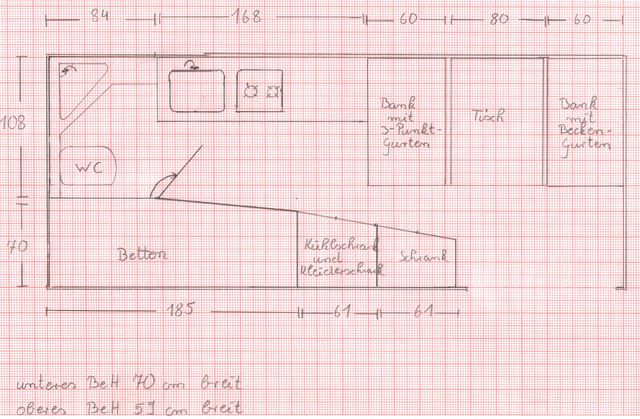 84 168 60 80 60
108
Bank
mit
3-Punkt-
Gurten
Tisch
Bank
mit
Becken-
Gurten
WC
70
Betten
Kühlschrank
und
Kleiderschrank
Schrank
185 61 61
unteres Bett 70 cm breit
oberes Bett 59 cm breit